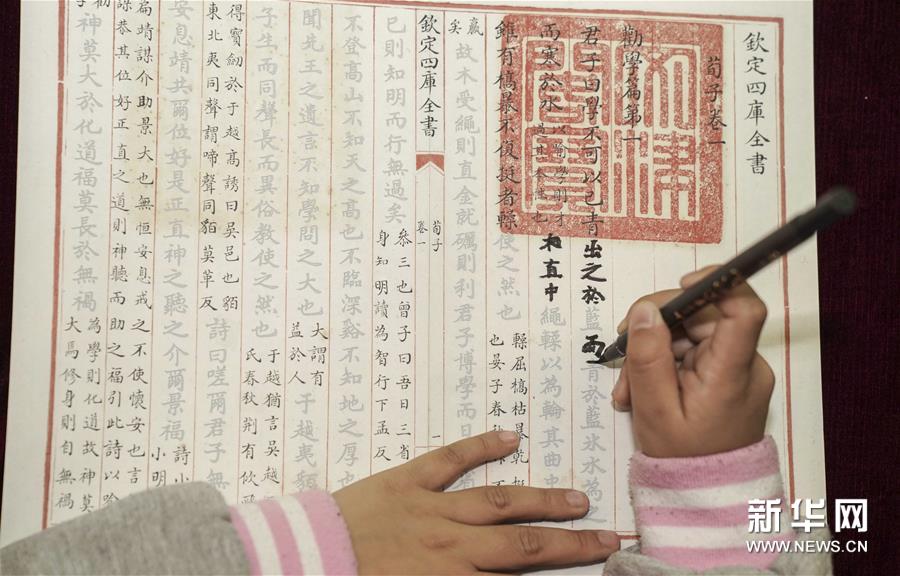 欽定四庫全書
荀子卷一
勸學篇第一
君子曰學不可以已青出之於藍而青於藍氷水為之
而寒於水
以喻學則才
過其本性也
木直中繩輮以為輪其曲中
雖有槁暴不復挺者輮使之然也
輮屈槁枯暴乾挺
也晏子春秋不
贏
矣
故木受繩則直金就礪則利君子博學而日省
欽定四庫全書
荀子
卷一
一
已則知明而行無過矣
叅三也曾子曰吾日三省
身知明讀為智行下孟反
不登高山不知天之高也不臨深谿不知地之厚也
聞先王之遺言不知學問之大也
大謂有
益於人
于越夷貉
子生而同聲長而異俗教使之然也
于越猶言吳越
氏春秋荆有佽
得寳劒於于越高誘曰吳邑也貊
東北夷同聲謂啼聲同貊莫革反
詩曰嗟爾君子無
安息靖共爾位好是正直神之聽之介爾景福
詩小
小明
扁靖謀介助景大也無恒安息戒之不使懷安也言
謀恭其位好正直之道則神聽而助之福引此詩以喻
神莫大於化道福莫長於無禍
為學則化道故神莫
大焉修身則自無禍
新华网
WWW.NEWS.CN